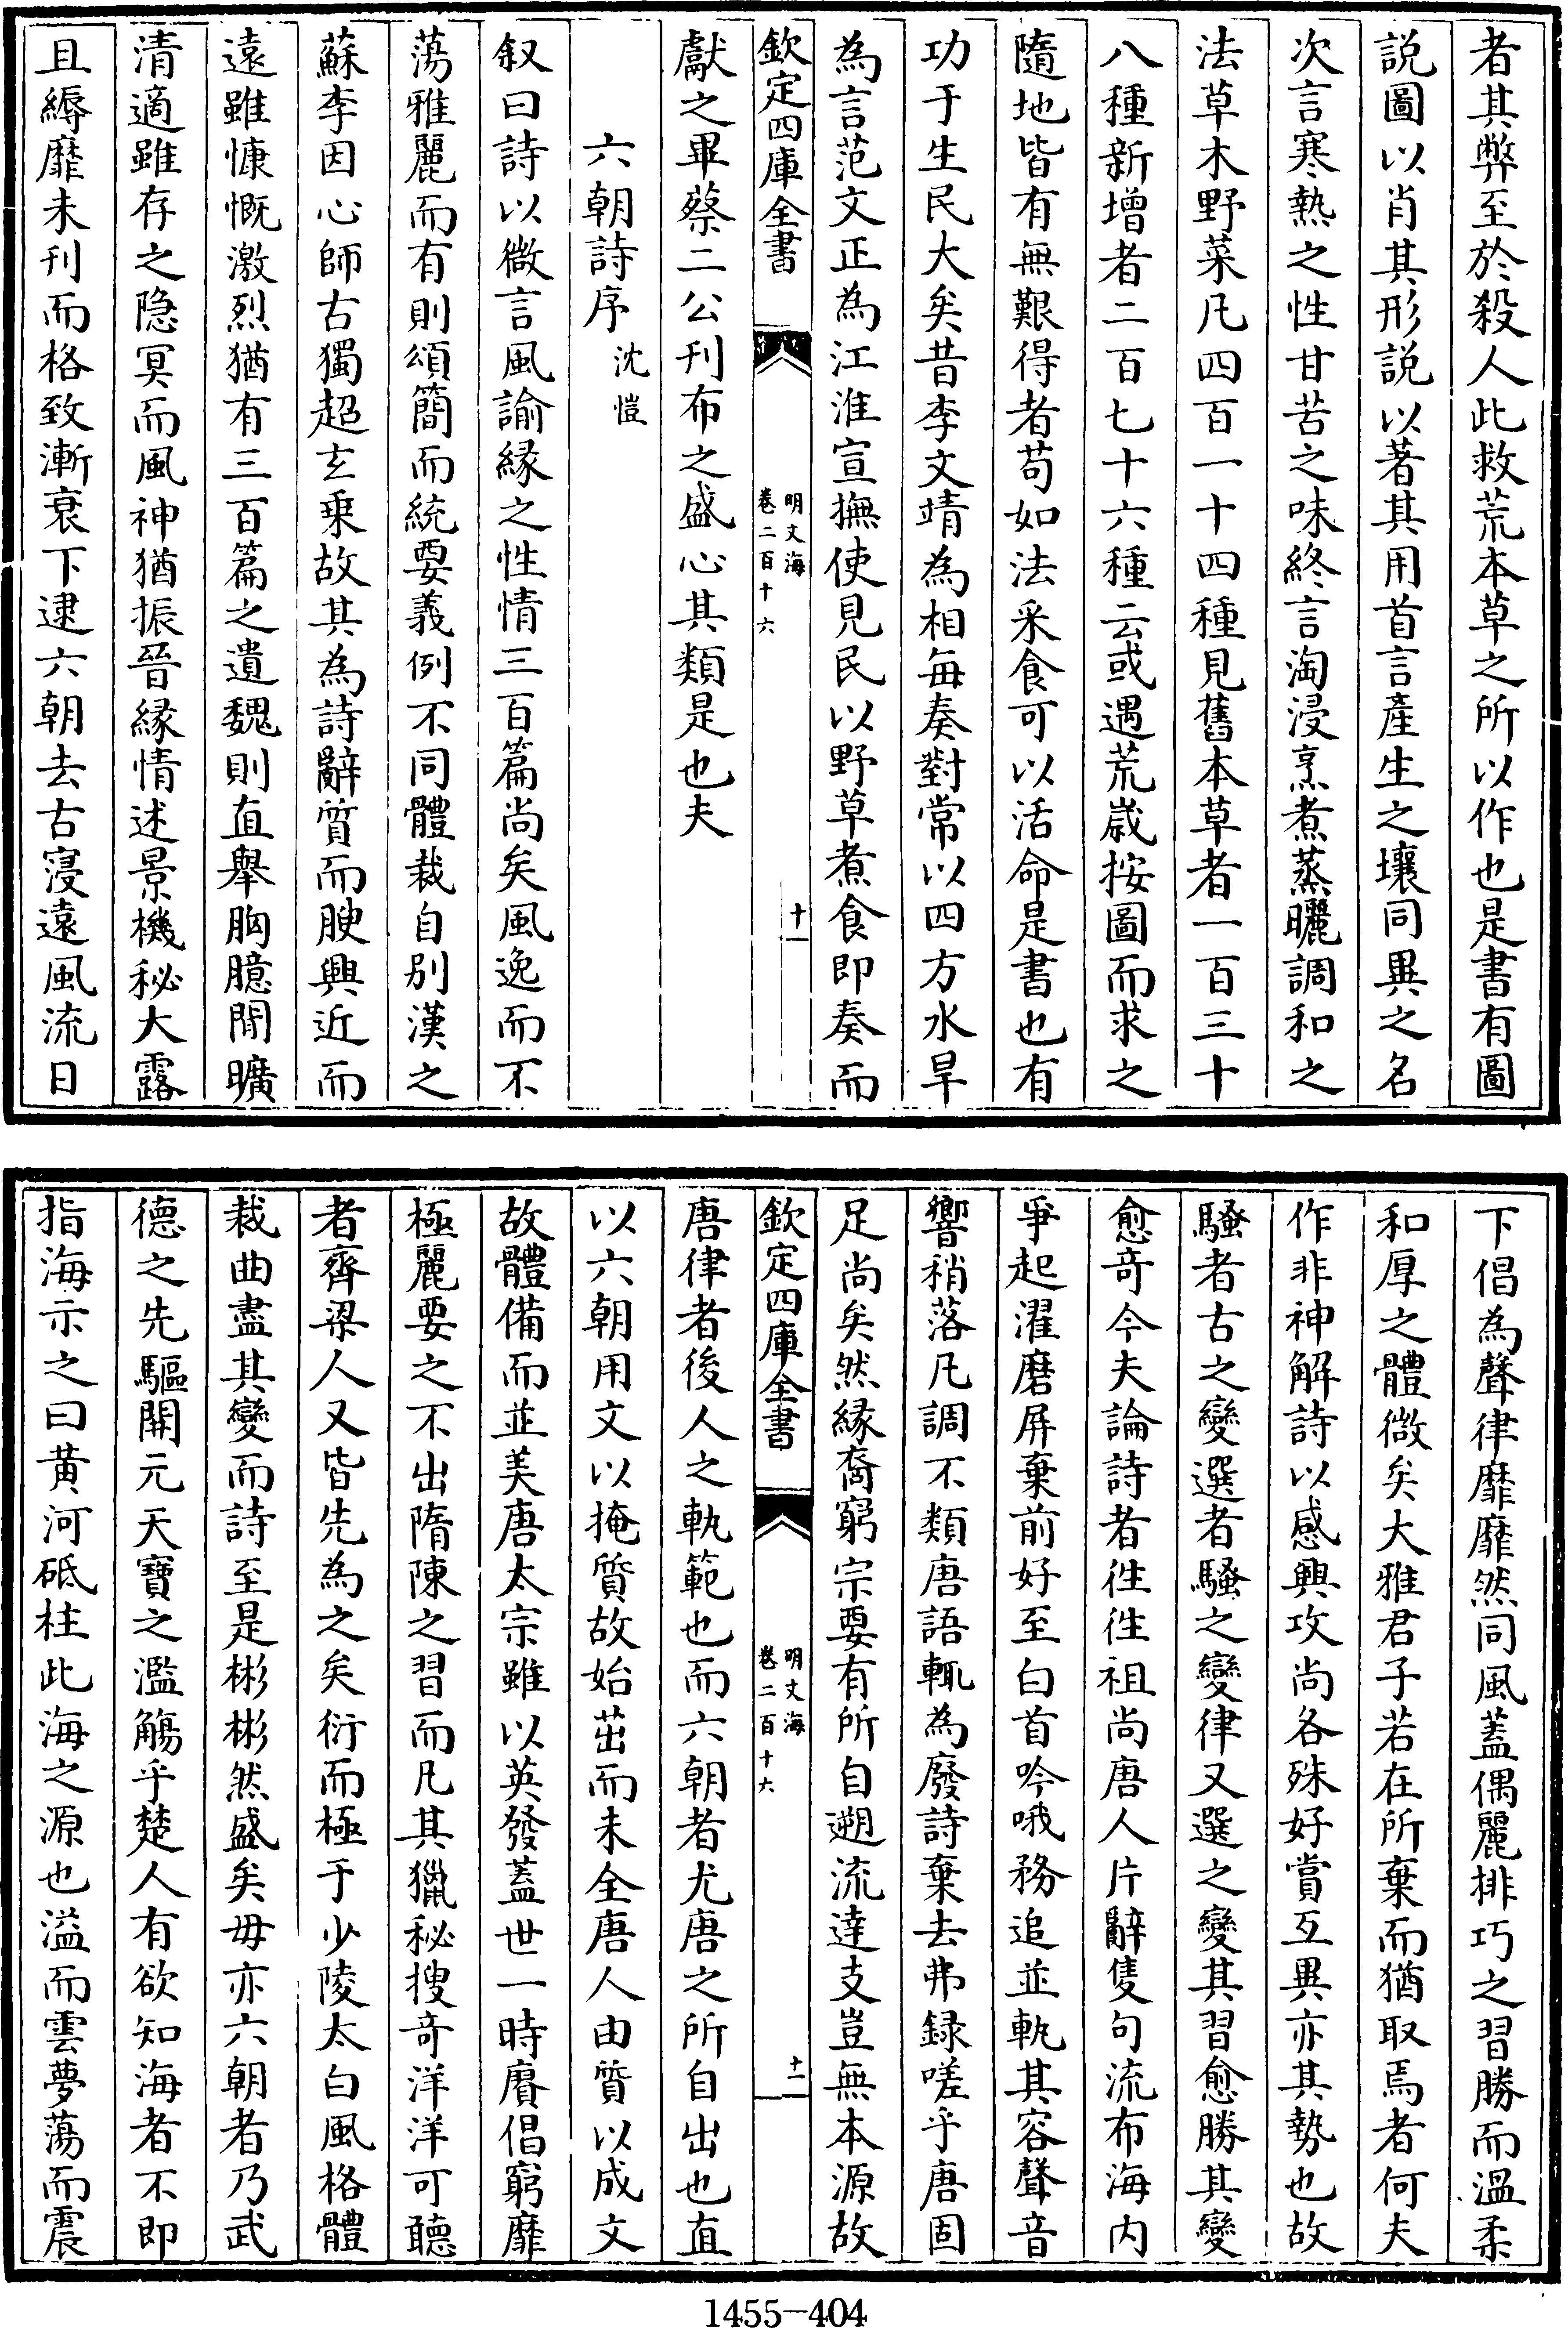 者其弊至於殺人此救荒本草之所以作也是書有圖
説圖以肖其形説以著其用首言產生之壤同異之名
次言寒熱之性甘苦之味終言淘浸烹煮蒸曬調和之
法草木野菜凡四百一十四種見舊本草者一百三十
八種新增者二百七十六種云或遇荒歲按圖而求之
隨地皆有無艱得者苟如法采食可以活命是書也有
功于生民大矣昔李文靖為相每奏對常以四方水旱
為言范文正為江淮宣撫使見民以野草煮食即奏而
欽定四庫全書
明文海
卷二百十六
十一
獻之畢蔡二公刊布之盛心其類是也夫
六朝詩序 沈愷
叙曰詩以微言風諭緣之性情三百篇尚矣風逸而不
蕩雅麗而有則頌簡而統要義例不同體裁自別漢之
蘇李因心師古獨超玄乗故其為詩辭質而腴興近而
遠雖慷慨激烈猶有三百篇之遺魏則直舉胸臆閒曠
清適雖存之隠冥而風神猶振晉緣情述景機秘大露
且縟靡未刋而格致漸衰下逮六朝去古寖遠風流日
下倡為聲律靡靡然同風蓋偶麗排巧之習勝而溫柔
和厚之體微矣大雅君子若在所棄而猶取焉者何夫
作非神解詩以感興攻尚各殊好賞互異亦其勢也故
騷者古之變選者騷之變律又選之變其習愈勝其變
愈奇今夫論詩者徃徃祖尚唐人片辭隻句流布海内
爭起濯磨屏棄前好至白首吟哦務追並軌其容聲音
響稍落凡調不類唐語輒為廢詩棄去弗録嗟乎唐固
足尚矣然緣裔窮宗要有所自遡流達支豈無本源故
欽定四庫全書
明文海
卷二百十六
十二
唐律者後人之軌範也而六朝者尤唐之所自出也直
以六朝用文以掩質故始茁而未全唐人由質以成文
故體備而並美唐太宗雖以英發蓋世一時賡倡窮靡
極麗要之不出隋陳之習而凡其獵秘搜奇洋洋可聽
者齊梁人又皆先為之矣衍而極于少陵太白風格體
裁曲盡其變而詩至是彬彬然盛矣毋亦六朝者乃武
德之先驅開元天寶之濫觴乎楚人有欲知海者不即
指海示之曰黄河砥柱此海之源也溢而雲夢蕩而震
1455-404